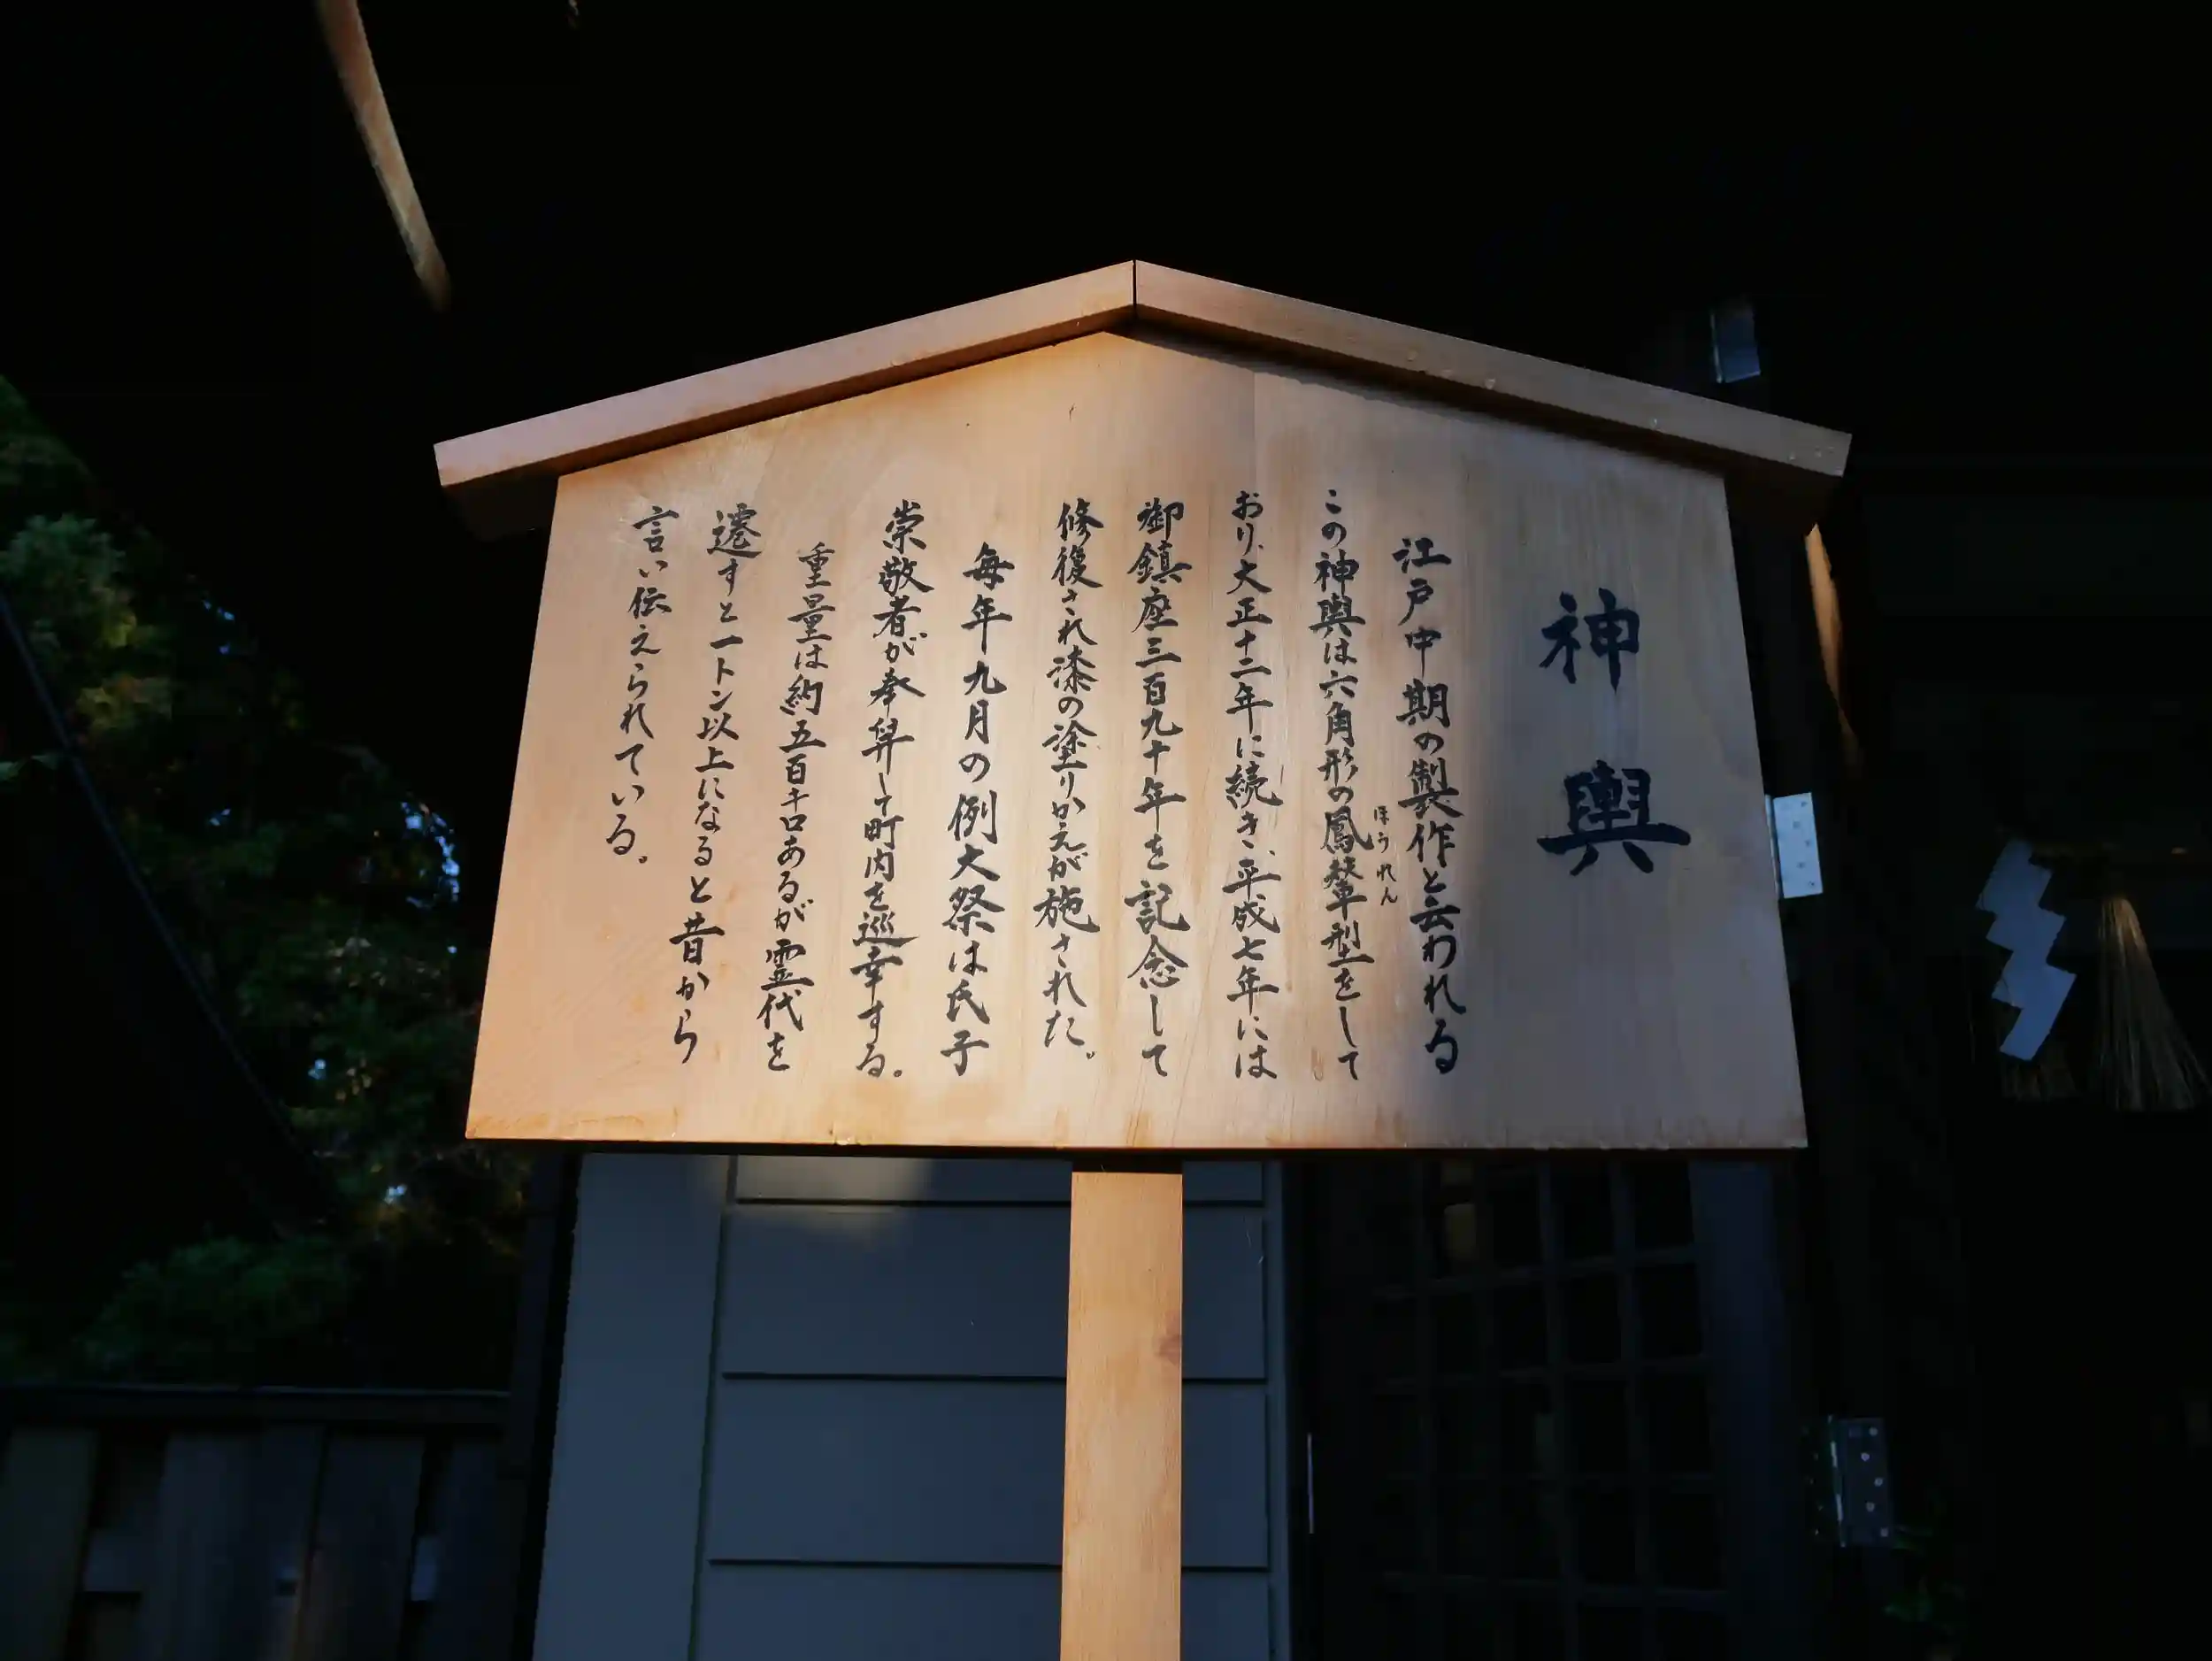 神輿
江戸中期の製作と云われる
この神輿は六角形の鳳輦型をして
ほうれん
おり、大正十二年に続き、平成七年には
御鎮座三百九十年を記念して
修復され漆の塗りかえが施された。
毎年九月の例大祭は氏子
崇敬者が奉舁して町内を巡幸する。
重量は約五百キロあるが霊代を
遷すと一トン以上になると昔から
言い伝えられている。